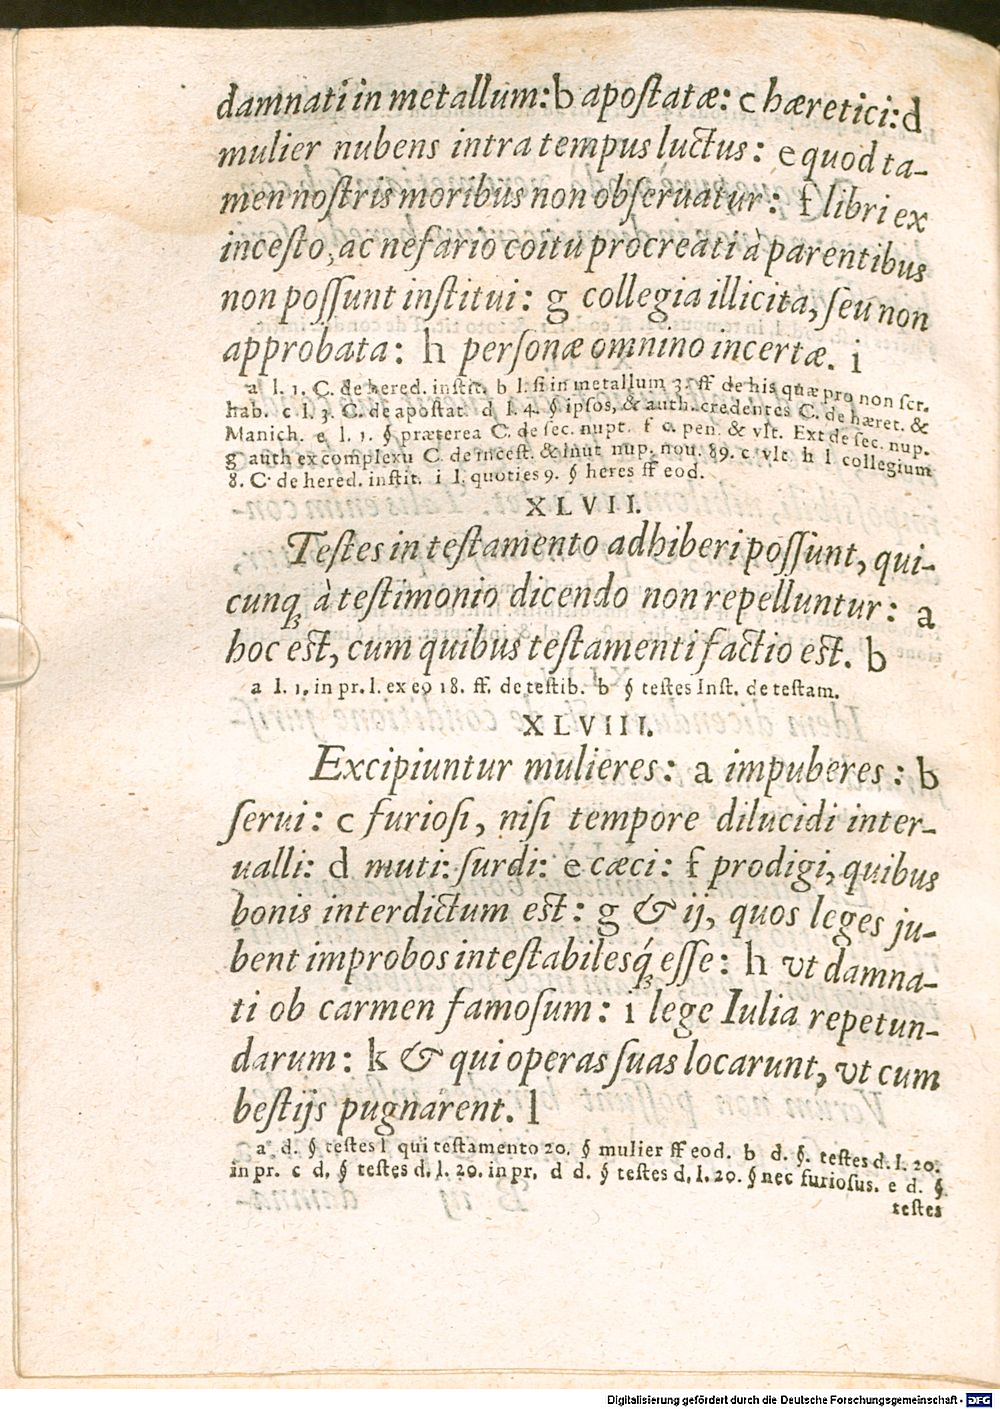 damnati in metallum: b apoſtatæ: c hæretici: d
mulier nubens intra tempus luctus: e quod ta-
men noſtris moribus non obſeruatur: f libri ex
inceſto, ac nefario coitu procreati à parentibus
non poſſunt inſtitui: g collegia illicita, ſeu non
approbata: h perſonæ omnino incertæ. i
a l. 1. C. de hered. inſtit. b l. ſi in metallum 3. ff de his quæ pro non ſcr.
hab. c l. 3. C. de apoſtat. d l. 4. § ipſos, & auth. credentes C. de hæret. &
Manich. e l. 1. § præterea C. de ſec. nupt. f c. pen. & vlt. Ext de ſec. nup.
g auth ex complexu C. de inceſt. & inut nup. nou. 89. c. vlt h l collegium
8. C. de hered. inſtit. i l. quoties 9. § heres ff eod.
XLVII.
Teſtes in teſtamento adhiberi poſſunt, qui-
cunq̃ à teſtimonio dicendo non repelluntur: a
hoc eſt, cum quibus teſtamenti factio eſt. b
a l. 1. in pr. l. ex eo 18. ff. de teſtib. b § teſtes Inſt. de teſtam.
XLVIII.
Excipiuntur mulieres: a impuberes: b
ſerui: c furioſi, niſi tempore dilucidi inter-
ualli: d muti: ſurdi: e cæci: f prodigi, quibus
bonis interdictum eſt: g & ij, quos leges ju-
bent improbos inteſtabilesq́; eſſe: h vt damna-
ti ob carmen famoſum: i lege Iulia repetun-
darum: k & qui operas ſuas locarunt, vt cum
beſtijs pugnarent. l
a d. § teſtes l qui teſtamento 20. § mulier ff eod. b d. §. teſtes d. l. 20.
in pr. c d. § teſtes d. l. 20. in pr. d d. § teſtes d. l. 20. § nec furioſus. e d. §
teſtes
Digitalisierung gefördert durch die Deutsche Forschungsgemeinschaft - DFG